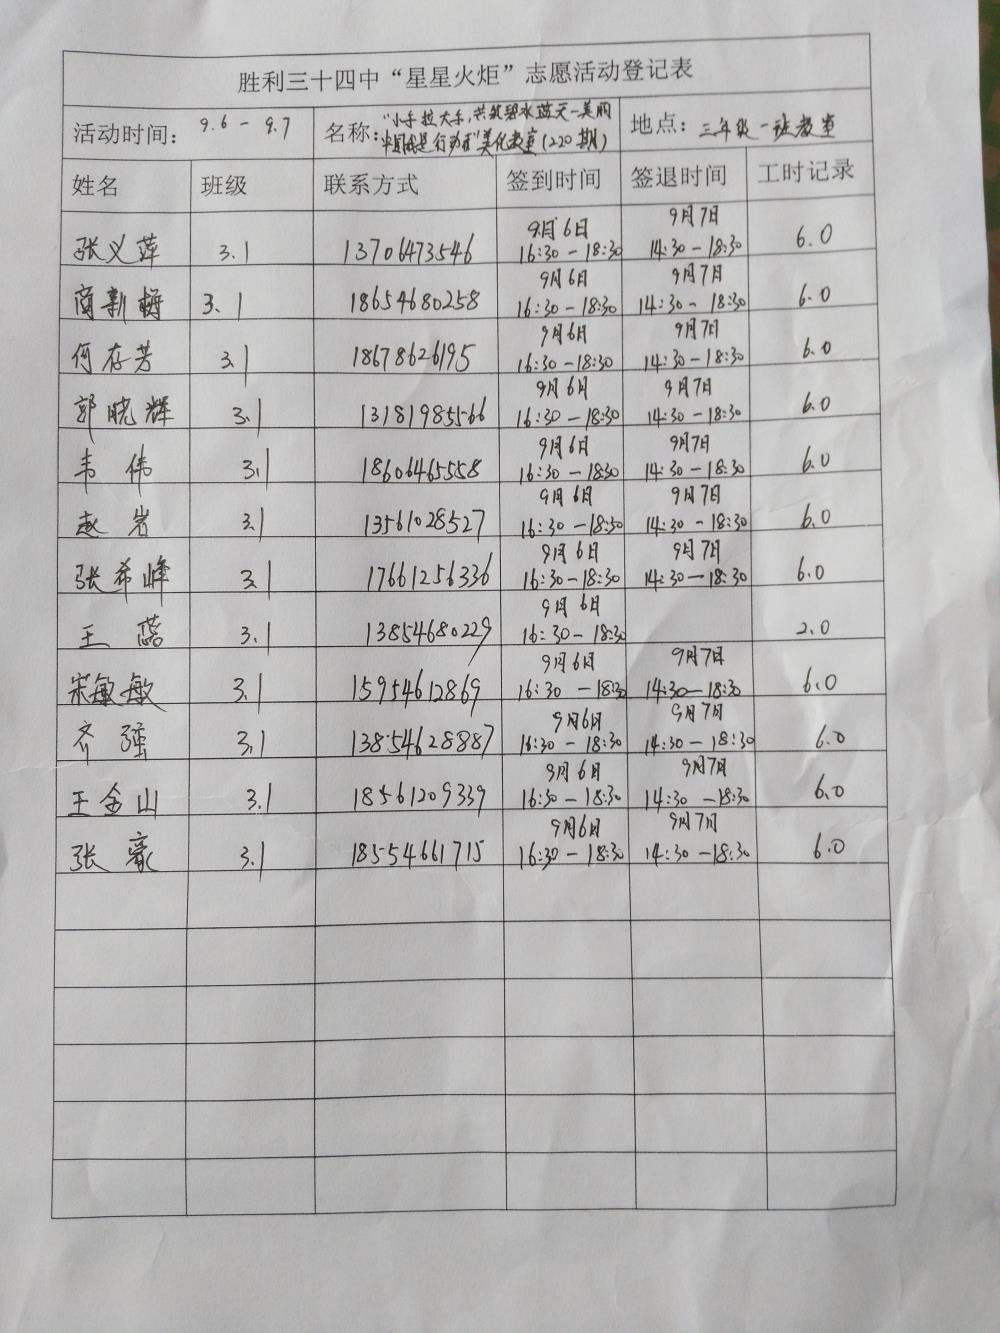 胜利三十四中“星星火炬”志愿活动登记表
活动时间： 9.6 - 9.7 名称：“小手拉大手，共筑碧水蓝天—美丽 地点：三年级一班教室
中国我是行动者”美化教室（220期）
姓名 班级 联系方式 签到时间 签退时间 工时记录
张义萍 3.1 13706473546 9月6日 16:30-18:30 9月7日 14:30-18:30 6.0
商新梅 3.1 18654680258 9月6日 16:30-18:30 9月7日 14:30-18:30 6.0
何存芳 3.1 18678626195 9月6日 16:30-18:30 9月7日 14:30-18:30 6.0
郭晓辉 3.1 13181985566 9月6日 16:30-18:30 9月7日 14:30-18:30 6.0
韦伟 3.1 18606465558 9月6日 16:30-18:30 9月7日 14:30-18:30 6.0
赵岩 3.1 13561028527 9月6日 16:30-18:30 9月7日 14:30-18:30 6.0
张希峰 3.1 17661256336 9月6日 16:30-18:30 9月7日 14:30-18:30 6.0
王 3.1 13854680229 9月6日 16:30-18:30 2.0
宋敏敏 3.1 15954612869 9月6日 16:30-18:30 9月7日 14:30-18:30 6.0
齐强 3.1 13854628887 9月6日 16:30-18:30 9月7日 14:30-18:30 6.0
王金山 3.1 18561209339 9月6日 16:30-18:30 9月7日 14:30-18:30 6.0
张豪 3.1 18554661715 9月6日 16:30-18:30 9月7日 14:30-18:30 6.0